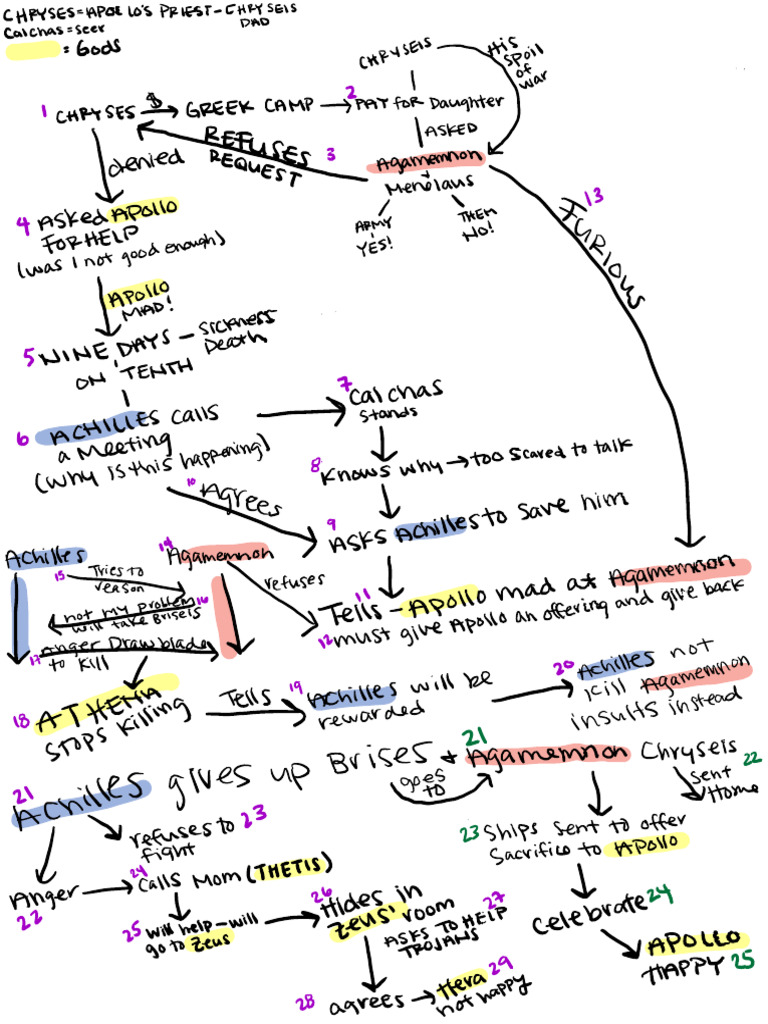 CHRYSES = APOLLO'S PRIEST - CHRYSEIS
DAD
Calchas = seer
= Gods
CHRYSEIS
His
spoil
of
war
1 CHRYSES $ GREEK CAMP 2 PAY for Daughter
ASKED
REFUSES 3
REQUEST
Agamemnon
Menelaus
ARMY
YES!
THEM
NO!
denied
13
FURIOUS
4 ASKed APOLLO
FOR HELP
(was I not good enough)
APOLLO
MAD!
5 NINE DAYS - SICKNESS
Death
ON TENTH
6 ACHILLES calls
a Meeting
(why is this happening)
7 Calchas
stands
8 Knows why → too scared to talk
10 Agrees
9 ASKS Achilles to save him
Achilles
14 Agamemnon
refuses
15 Tries to
reason
not my problem 16
will take Briseis
17 Anger Draw blade
to kill
11
Tells - APOLLO mad at Agamemnon
12 must give Apollo an offering and give back
18 ATHENA
stops killing
Tells
19 Achilles will be
rewarded
20 Achilles not
kill Agamemnon
insults instead
21
Achilles gives up Brises +
goes
to
21
Agamemnon Chryseis
sent 22
Home
refuses to 23
fight
Anger
22
24
Calls Mom (THETIS)
25 will help - will
go to Zeus
26
Hides in
Zeus' room
27
ASKS TO HELP
TROJANS
28 agrees → Hera 29
not happy
23 Ships sent to offer
Sacrifice to APOLLO
celebrate 24
APOLLO
HAPPY 25